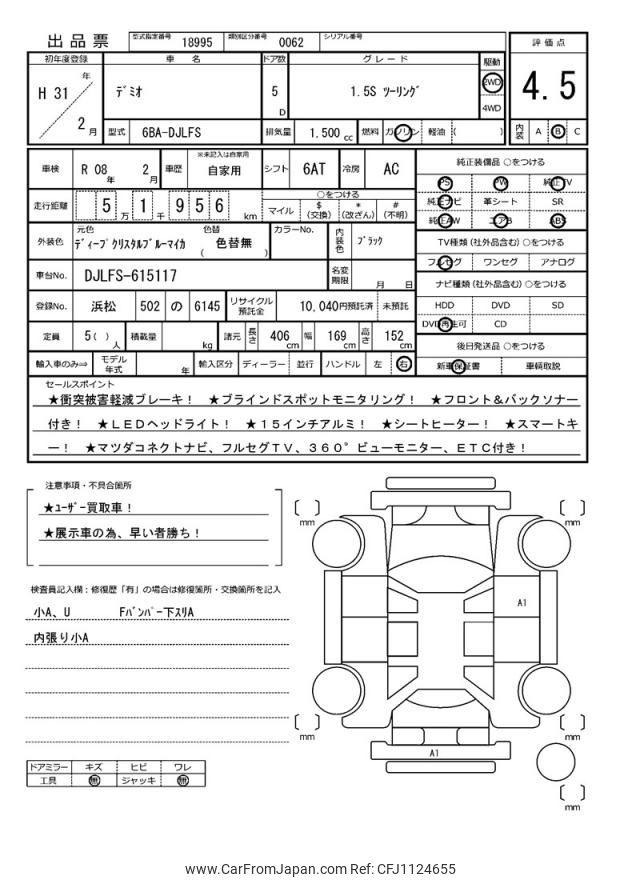 出品票 型式指定番号 18995 類別区分番号 0062 シリアル番号
評価点
4.5
内装 A B C
初年度登録 車名 ドア数 グレード 駆動
H 31 年 2 月 デミオ 5 D 1.5S ツーリング 2WD 4WD
型式 6BA-DJLFS 排気量 1.500 cc 燃料 ガソリン 軽油 ( )
車検 R 08 年 2 月 車歴 ※未記入は自家用 自家用 シフト 6AT 冷房 AC
走行距離 5 万 1 千 9 5 6 km
○をつける
マイル $ (交換) * (改ざん) # (不明)
外装色 元色 ディープクリスタルブルーマイカ 色替 ( 色替無 ) カラーNo. 内装色 ブラック
車台No. DJLFS-615117 名変期限 月 日
登録No. 浜松 502 の 6145 リサイクル預託金 10,040円預託済 未預託
定員 5( ) 人 積載量 kg 諸元 長さ 406 cm 幅 169 cm 高さ 152 cm
輸入車のみ⇒ モデル年式 年 輸入区分 ディーラー 並行 ハンドル 左 右
純正装備品 ○をつける
PS PW 純正TV
純正ナビ 革シート SR
純正AW エアB ABS
TV種類 (社外品含む) ○をつける
フルセグ ワンセグ アナログ
ナビ種類 (社外品含む) ○をつける
HDD DVD SD
DVD再生可 CD
後日発送品 ○をつける
新車保証書 車輌取説
セールスポイント
★衝突被害軽減ブレーキ! ★ブラインドスポットモニタリング! ★フロント&バックソナー
付き! ★LEDヘッドライト! ★15インチアルミ! ★シートヒーター! ★スマートキ
ー! ★マツダコネクトナビ、フルセグTV、360°ビューモニター、ETC付き!
注意事項・不具合箇所
★ユーザー買取車!
★展示車の為、早い者勝ち!
検査員記入欄:修復歴「有」の場合は修復箇所・交換箇所を記入
小A、U Fバンパー下スリA
内張り小A
ドアミラー キズ ヒビ ワレ
工具 無 ジャッキ 無
mm
mm
A1
mm
mm
A1
mm
www.CarFromJapan.com Ref: CFJ1124655